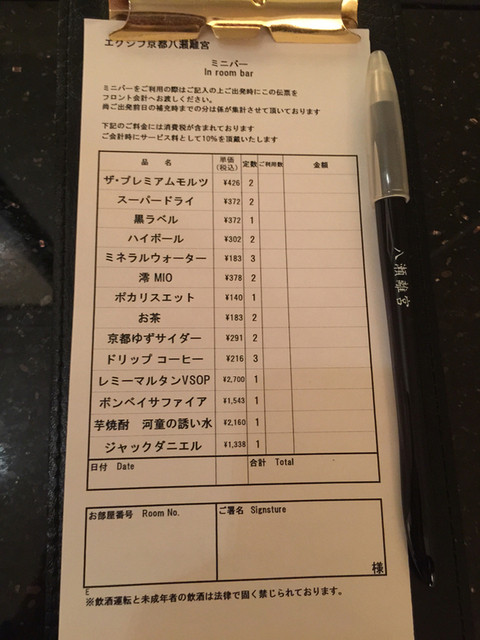 エクシブ京都八瀬離宮
ミニバー
In room bar
ミニバーをご利用の際はご記入の上ご出発時にこの伝票を
フロント会計へお渡しください。
尚ご出発前日の補充時までの分は係が集計させて頂いております
下記のご料金には消費税が含まれております
ご会計時にサービス料として10%を頂戴いたします
品 名 単価(税込) 定数 ご利用数 金額
ザ・プレミアムモルツ ¥426 2
スーパードライ ¥372 2
黒ラベル ¥372 1
ハイボール ¥302 2
ミネラルウォーター ¥183 3
澪 MIO ¥378 2
ポカリスエット ¥140 1
お茶 ¥183 2
京都ゆずサイダー ¥291 2
ドリップ コーヒー ¥216 3
レミーマルタンVSOP ¥2,700 1
ボンベイサファイア ¥1,543 1
芋焼酎 河童の誘い水 ¥2,160 1
ジャックダニエル ¥1,338 1
日付 Date 合計 Total
お部屋番号 Room No. ご署名 Signsture
様
E
※飲酒運転と未成年者の飲酒は法律で固く禁じられております。
八瀬離宮